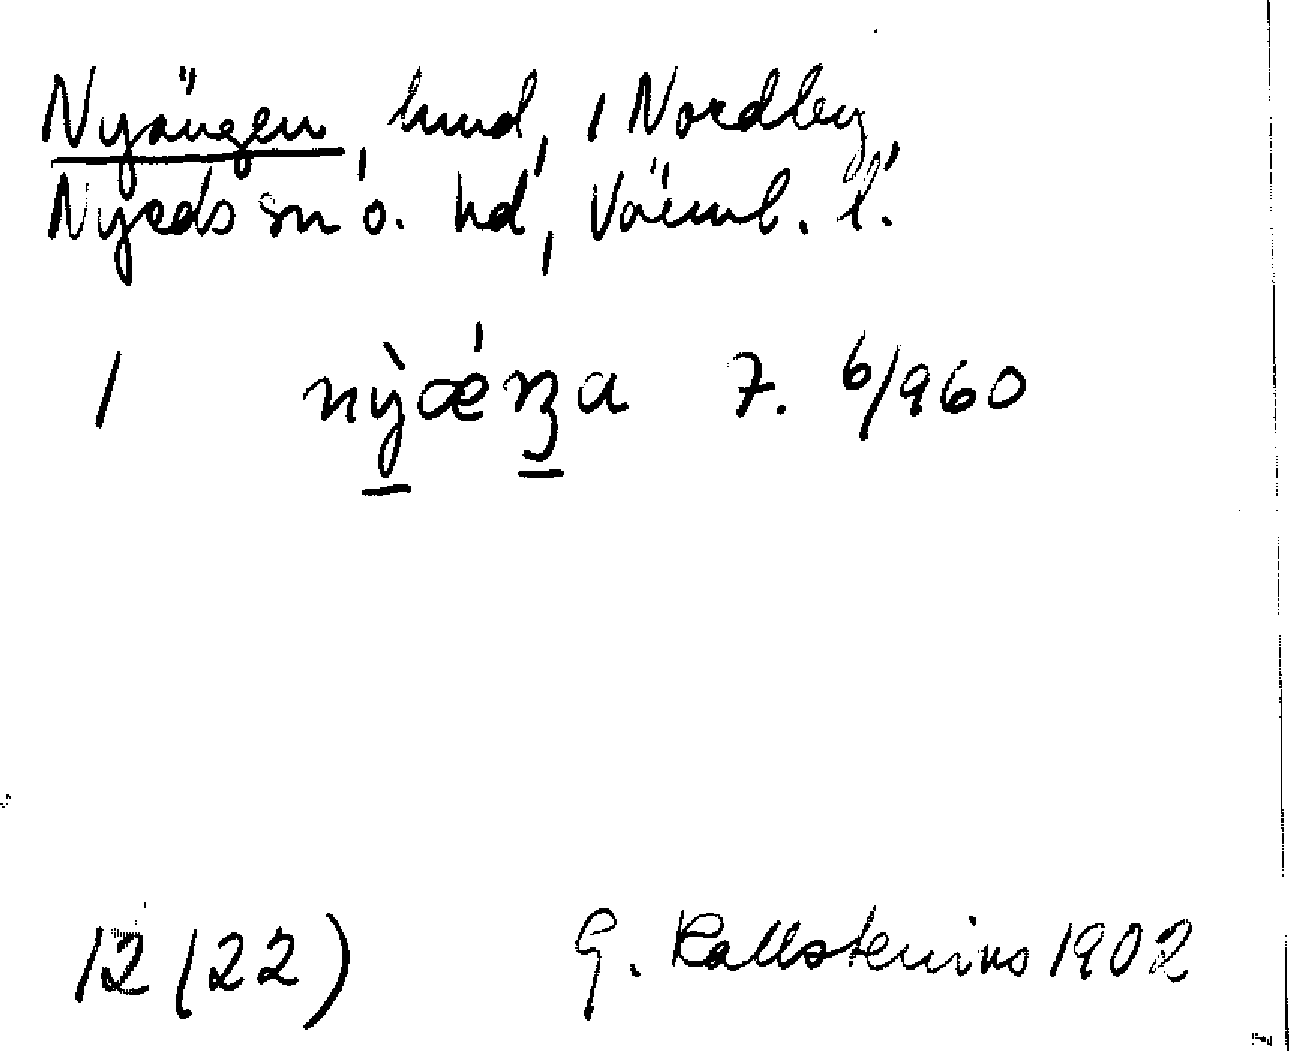 Nyängen, hmd, i Nordby,
Nyeds sn o. hd, Värml. l.
1 7. 6/960
12 (22) G. Kallstenius 1902